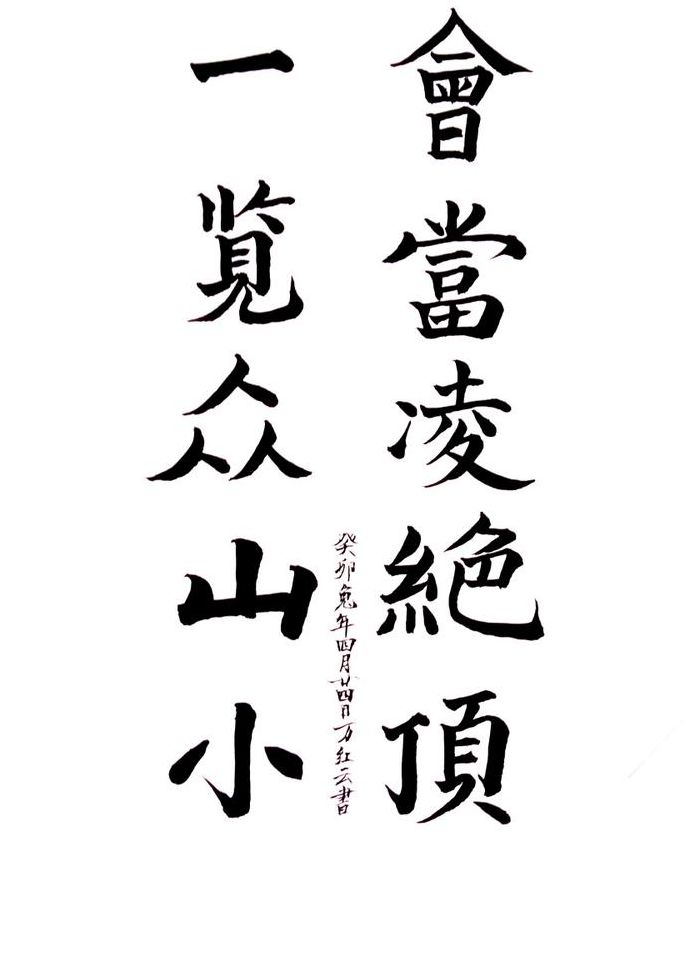 會當凌絕頂
一览众山小
癸卯兔年四月廿四日万红云書